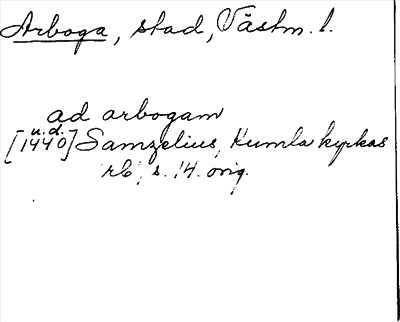 Arboga, stad, Västm. l.
ad arbogam
u.d.
[1440] Samzelius, Kumla kyrkas
rb, s. 14. orig.